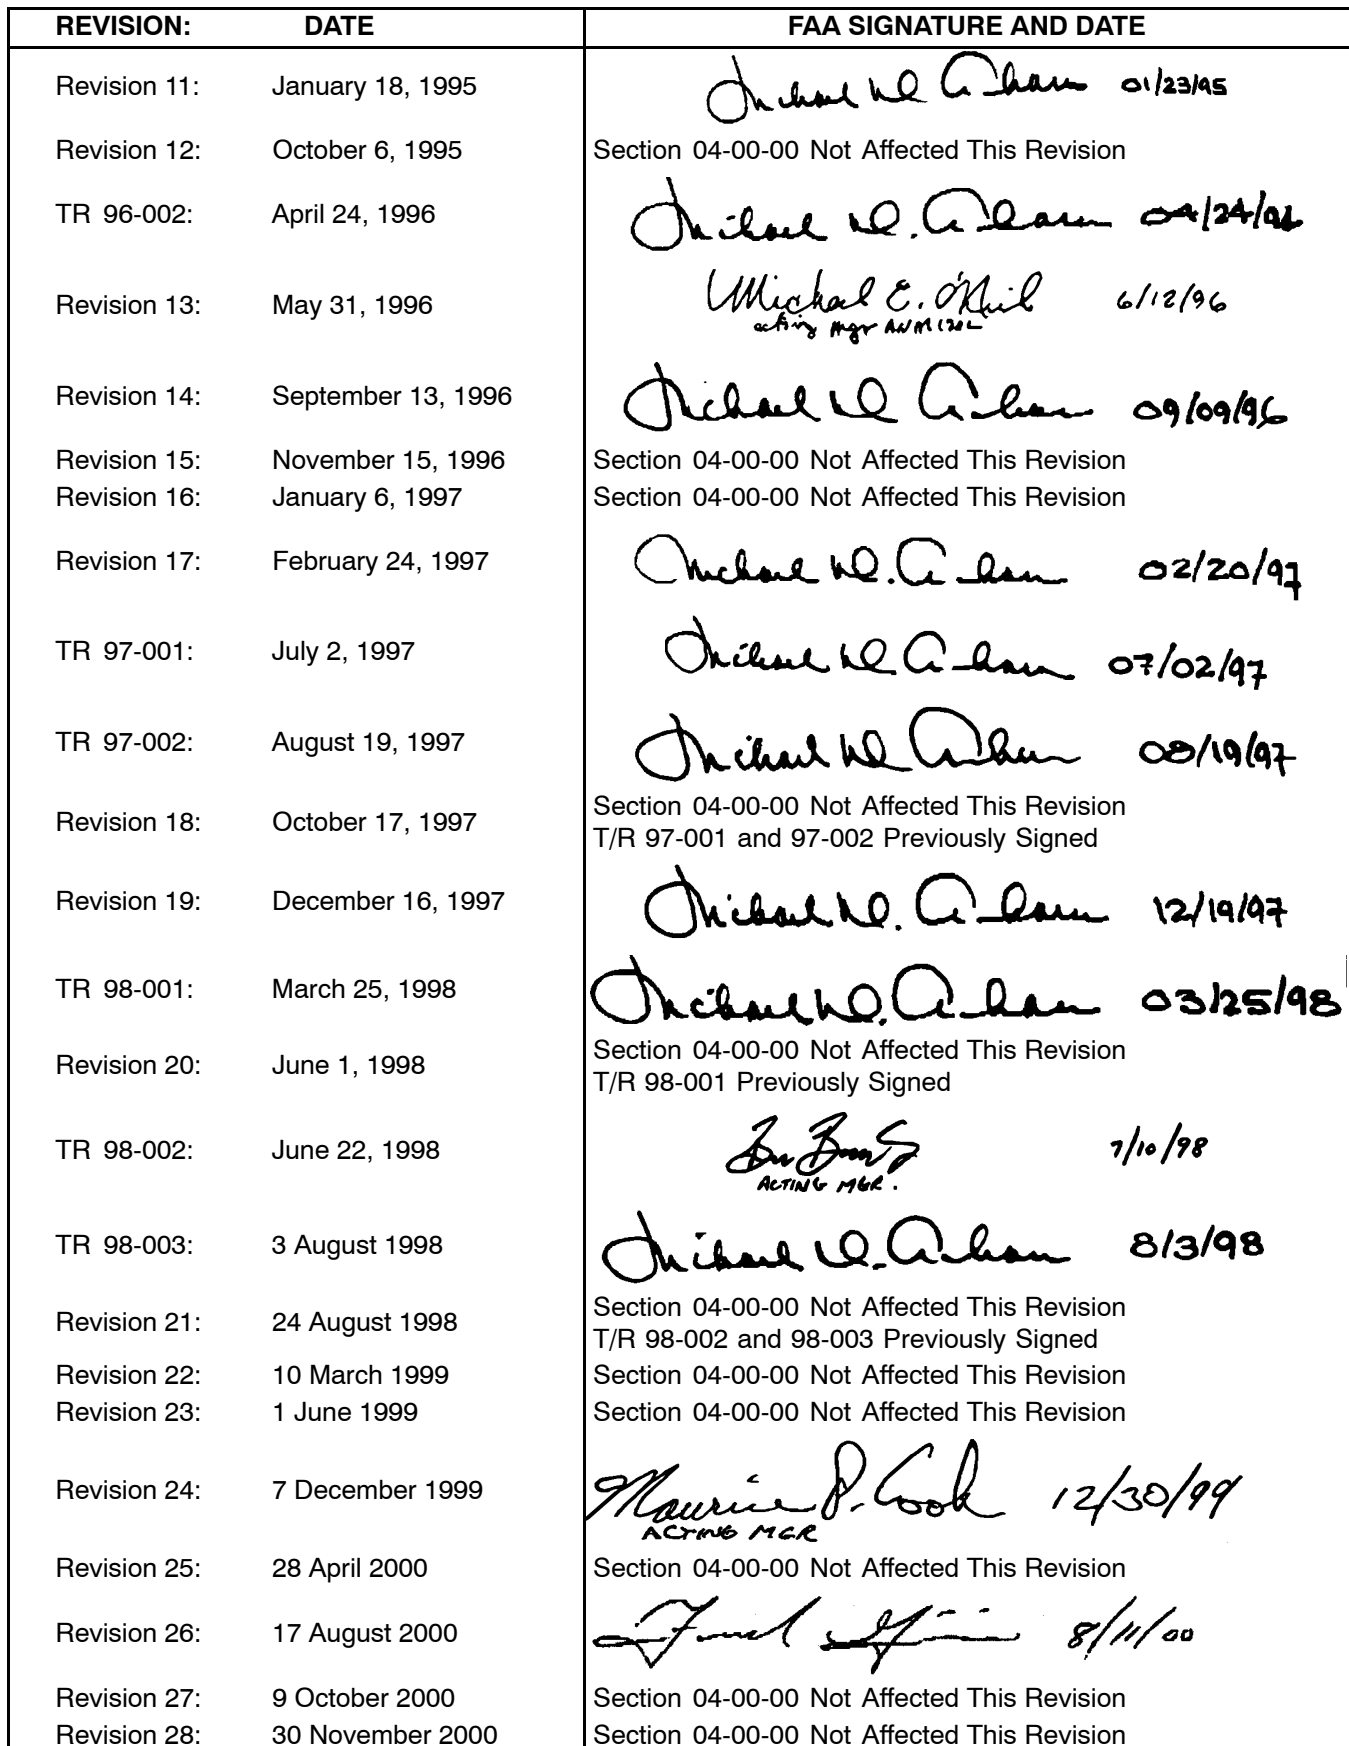 REVISION: DATE FAA SIGNATURE AND DATE
Revision 11: January 18, 1995 01/23/95
Revision 12: October 6, 1995 Section 04-00-00 Not Affected This Revision
TR 96-002: April 24, 1996 Michael D. 04/24/96
Revision 13: May 31, 1996 Michael E. O'Neil 6/12/96
acting Mgr
Revision 14: September 13, 1996 Michael 09/09/96
Revision 15: November 15, 1996 Section 04-00-00 Not Affected This Revision
Revision 16: January 6, 1997 Section 04-00-00 Not Affected This Revision
Revision 17: February 24, 1997 Michael 02/20/97
TR 97-001: July 2, 1997 Michael 07/02/97
TR 97-002: August 19, 1997 Michael 08/19/97
Revision 18: October 17, 1997 Section 04-00-00 Not Affected This Revision
T/R 97-001 and 97-002 Previously Signed
Revision 19: December 16, 1997 Michael 12/19/97
TR 98-001: March 25, 1998 Michael 03/25/98
Revision 20: June 1, 1998 Section 04-00-00 Not Affected This Revision
T/R 98-001 Previously Signed
TR 98-002: June 22, 1998 7/10/98
ACTING MGR.
TR 98-003: 3 August 1998 Michael 8/3/98
Revision 21: 24 August 1998 Section 04-00-00 Not Affected This Revision
T/R 98-002 and 98-003 Previously Signed
Revision 22: 10 March 1999 Section 04-00-00 Not Affected This Revision
Revision 23: 1 June 1999 Section 04-00-00 Not Affected This Revision
Revision 24: 7 December 1999 Maurice P. Cook 12/30/99
ACTING MGR
Revision 25: 28 April 2000 Section 04-00-00 Not Affected This Revision
Revision 26: 17 August 2000 8/11/00
Revision 27: 9 October 2000 Section 04-00-00 Not Affected This Revision
Revision 28: 30 November 2000 Section 04-00-00 Not Affected This Revision